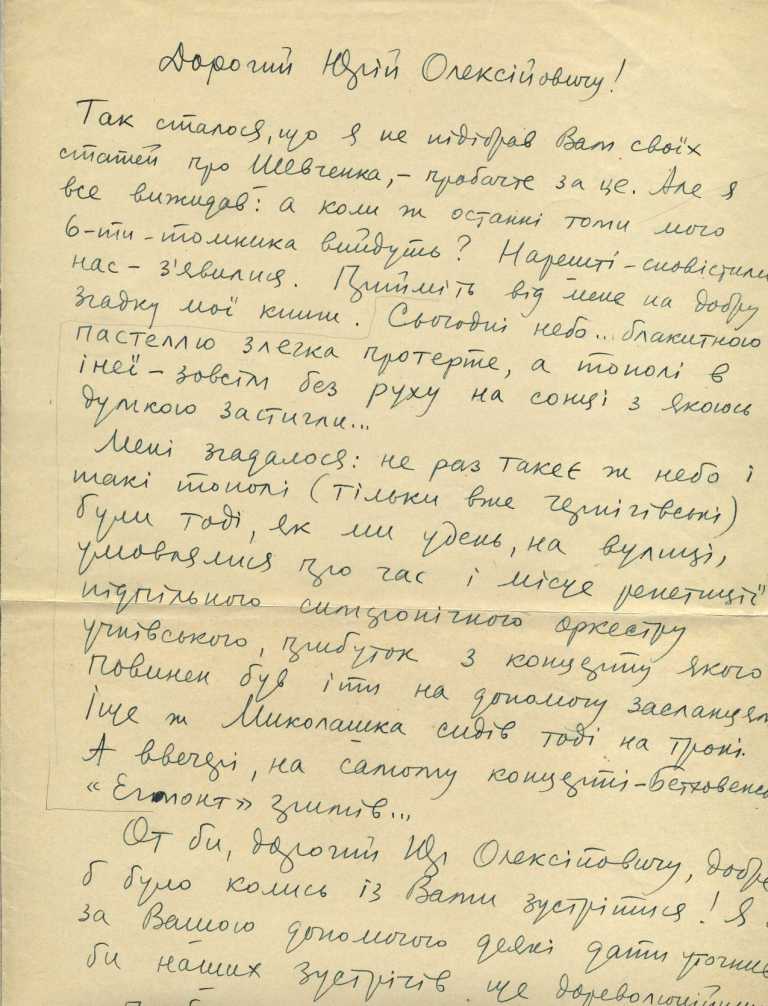 Дорогий Юрій Олексійовичу!
Так сталося, що я не підібрав Вам своїх
статей про Шевченка, – пробачте за це. Але я
все вижидав: а коли ж останні томи мого
6-ти-томника вийдуть? Нарешті – сповістили
нас – з'явилися. Прийміть від мене на добру
згадку мої книги. Сьогодні небо... блакитною
пастеллю злегка протерте, а тополі в
інеї – зовсім без руху на сонці з якоюсь
думкою застигли...
Мені згадалося: не раз такеє ж небо і
такі тополі (тільки вже чернігівські)
були тоді, як ми удень, на вулиці,
умовлялися про час і місце репетиції
підпільного симфонічного оркестру
учнівського, прибуток з концерту якого
повинен був іти на допомогу засланцям
Іще ж Миколашка сидів тоді на троні.
А ввечері, на самому концерті – Бетховенсь
«Егмонт» гримів...
От би, дорогий Юр Олексійовичу, добре
б було колись із Вами зустрітися! Я
за Вашою допомогою деякі дати уточнив
би наших зустрічів ще дореволюційних